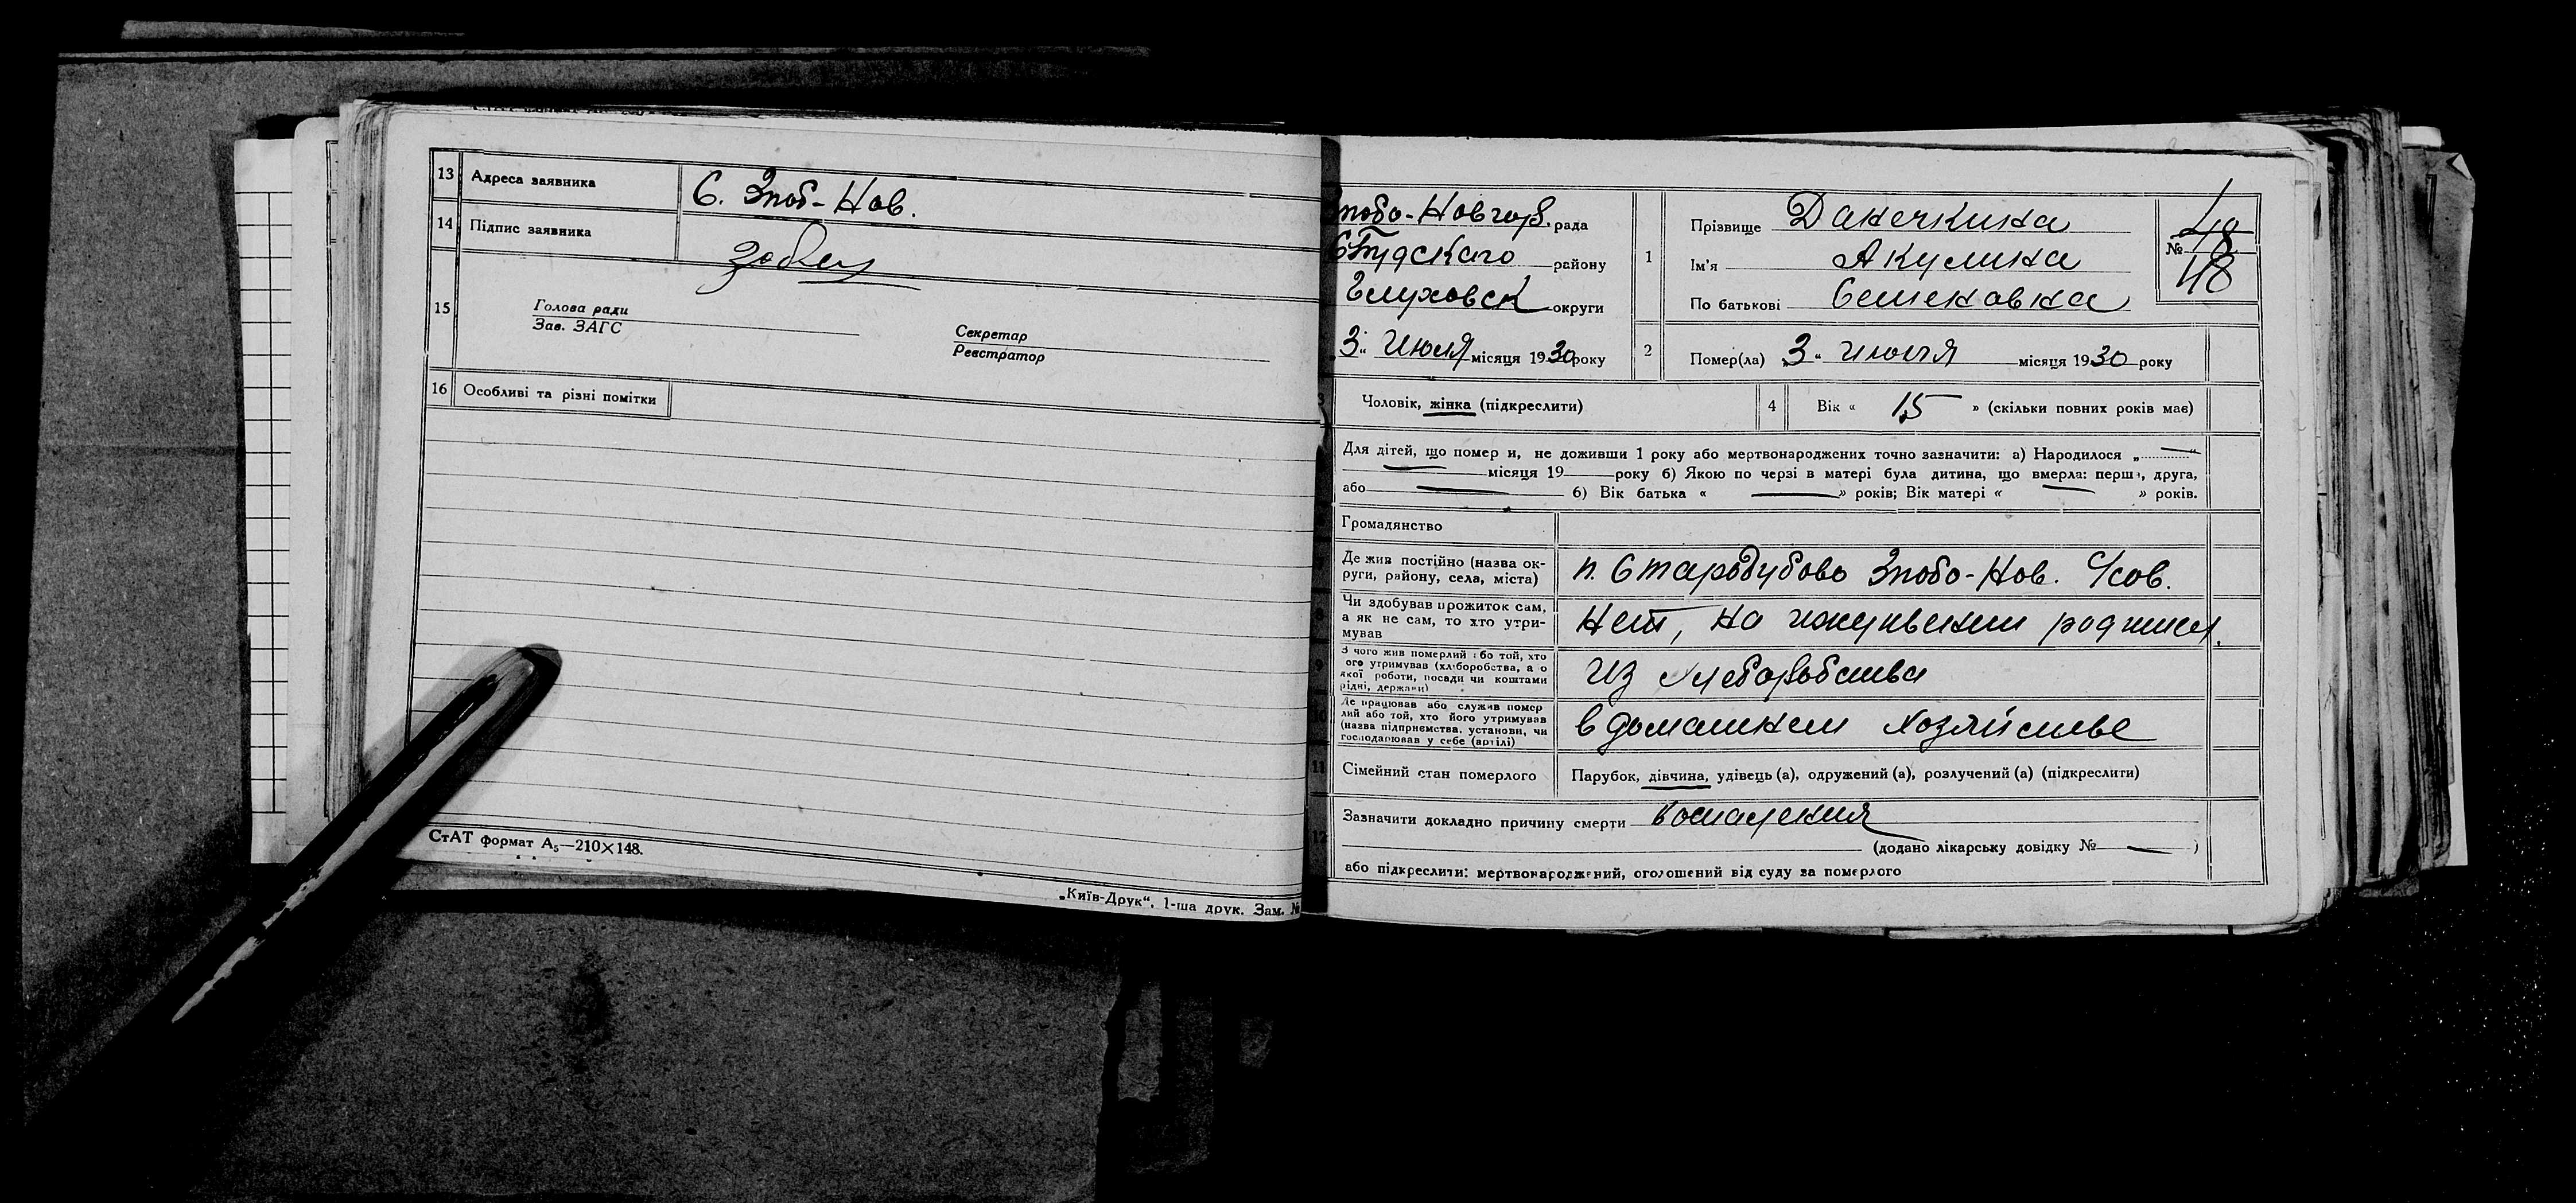 13 Адреса заявника С. Зноб-Нов.
14 Підпис заявника
15 Голова ради
Зав. ЗАГС
Секретар
Реєстратор
16 Особливі та різні помітки
СтАТ формат А₅—210×148.
„Київ-Друк“, 1-ша друк. Зам. №
Знобо-Новгор. рада
районy
Глуховск округи
3 „ Июля місяця 1930 року
1 Прізвище Данечкина
Ім'я Акулина
По батькові Семеновна
№ 48
48
2 Помер(ла) „3„ июля місяця 1930 року
Чоловік, жінка (підкреслити)
4 Вік « 15 » (скільки повних років має)
Для дітей, що помер и, не доживши 1 року або мертвонароджених точно зазначити: а) Народилося „ — “
— місяця 19 року б) Якою по черзі в матері була дитина, що вмерла: перша, друга,
або — б) Вік батька « — » років; Вік матері « — » років.
Громадянство
Де жив постійно (назва ок-
руги, району, села, міста) п. Стародубово Знобо-Нов.
8 Чи здобував прожиток сам,
а як не сам, то хто утри-
мував Нет, на иждивении
9 З чого жив померлий або той, хто
ого утримував (хліборобства, а о
якої роботи, посади чи коштами
рідні, держави) из хлеборобства
10 Де працював або служив помер
лий або той, хто його утримував
(назва підприємства, установи, чи
господарював у себе (артілі) в домашнем хозяйстве
11 Сімейний стан померлого Парубок, дівчина, удівець (а), одружений (а), розлучений (а) (підкреслити)
12 Зазначити докладно причину смерти воспаления
(додано лікарську довідку № — )
або підкреслити: мертвонароджений, оголошений від суду за померлого